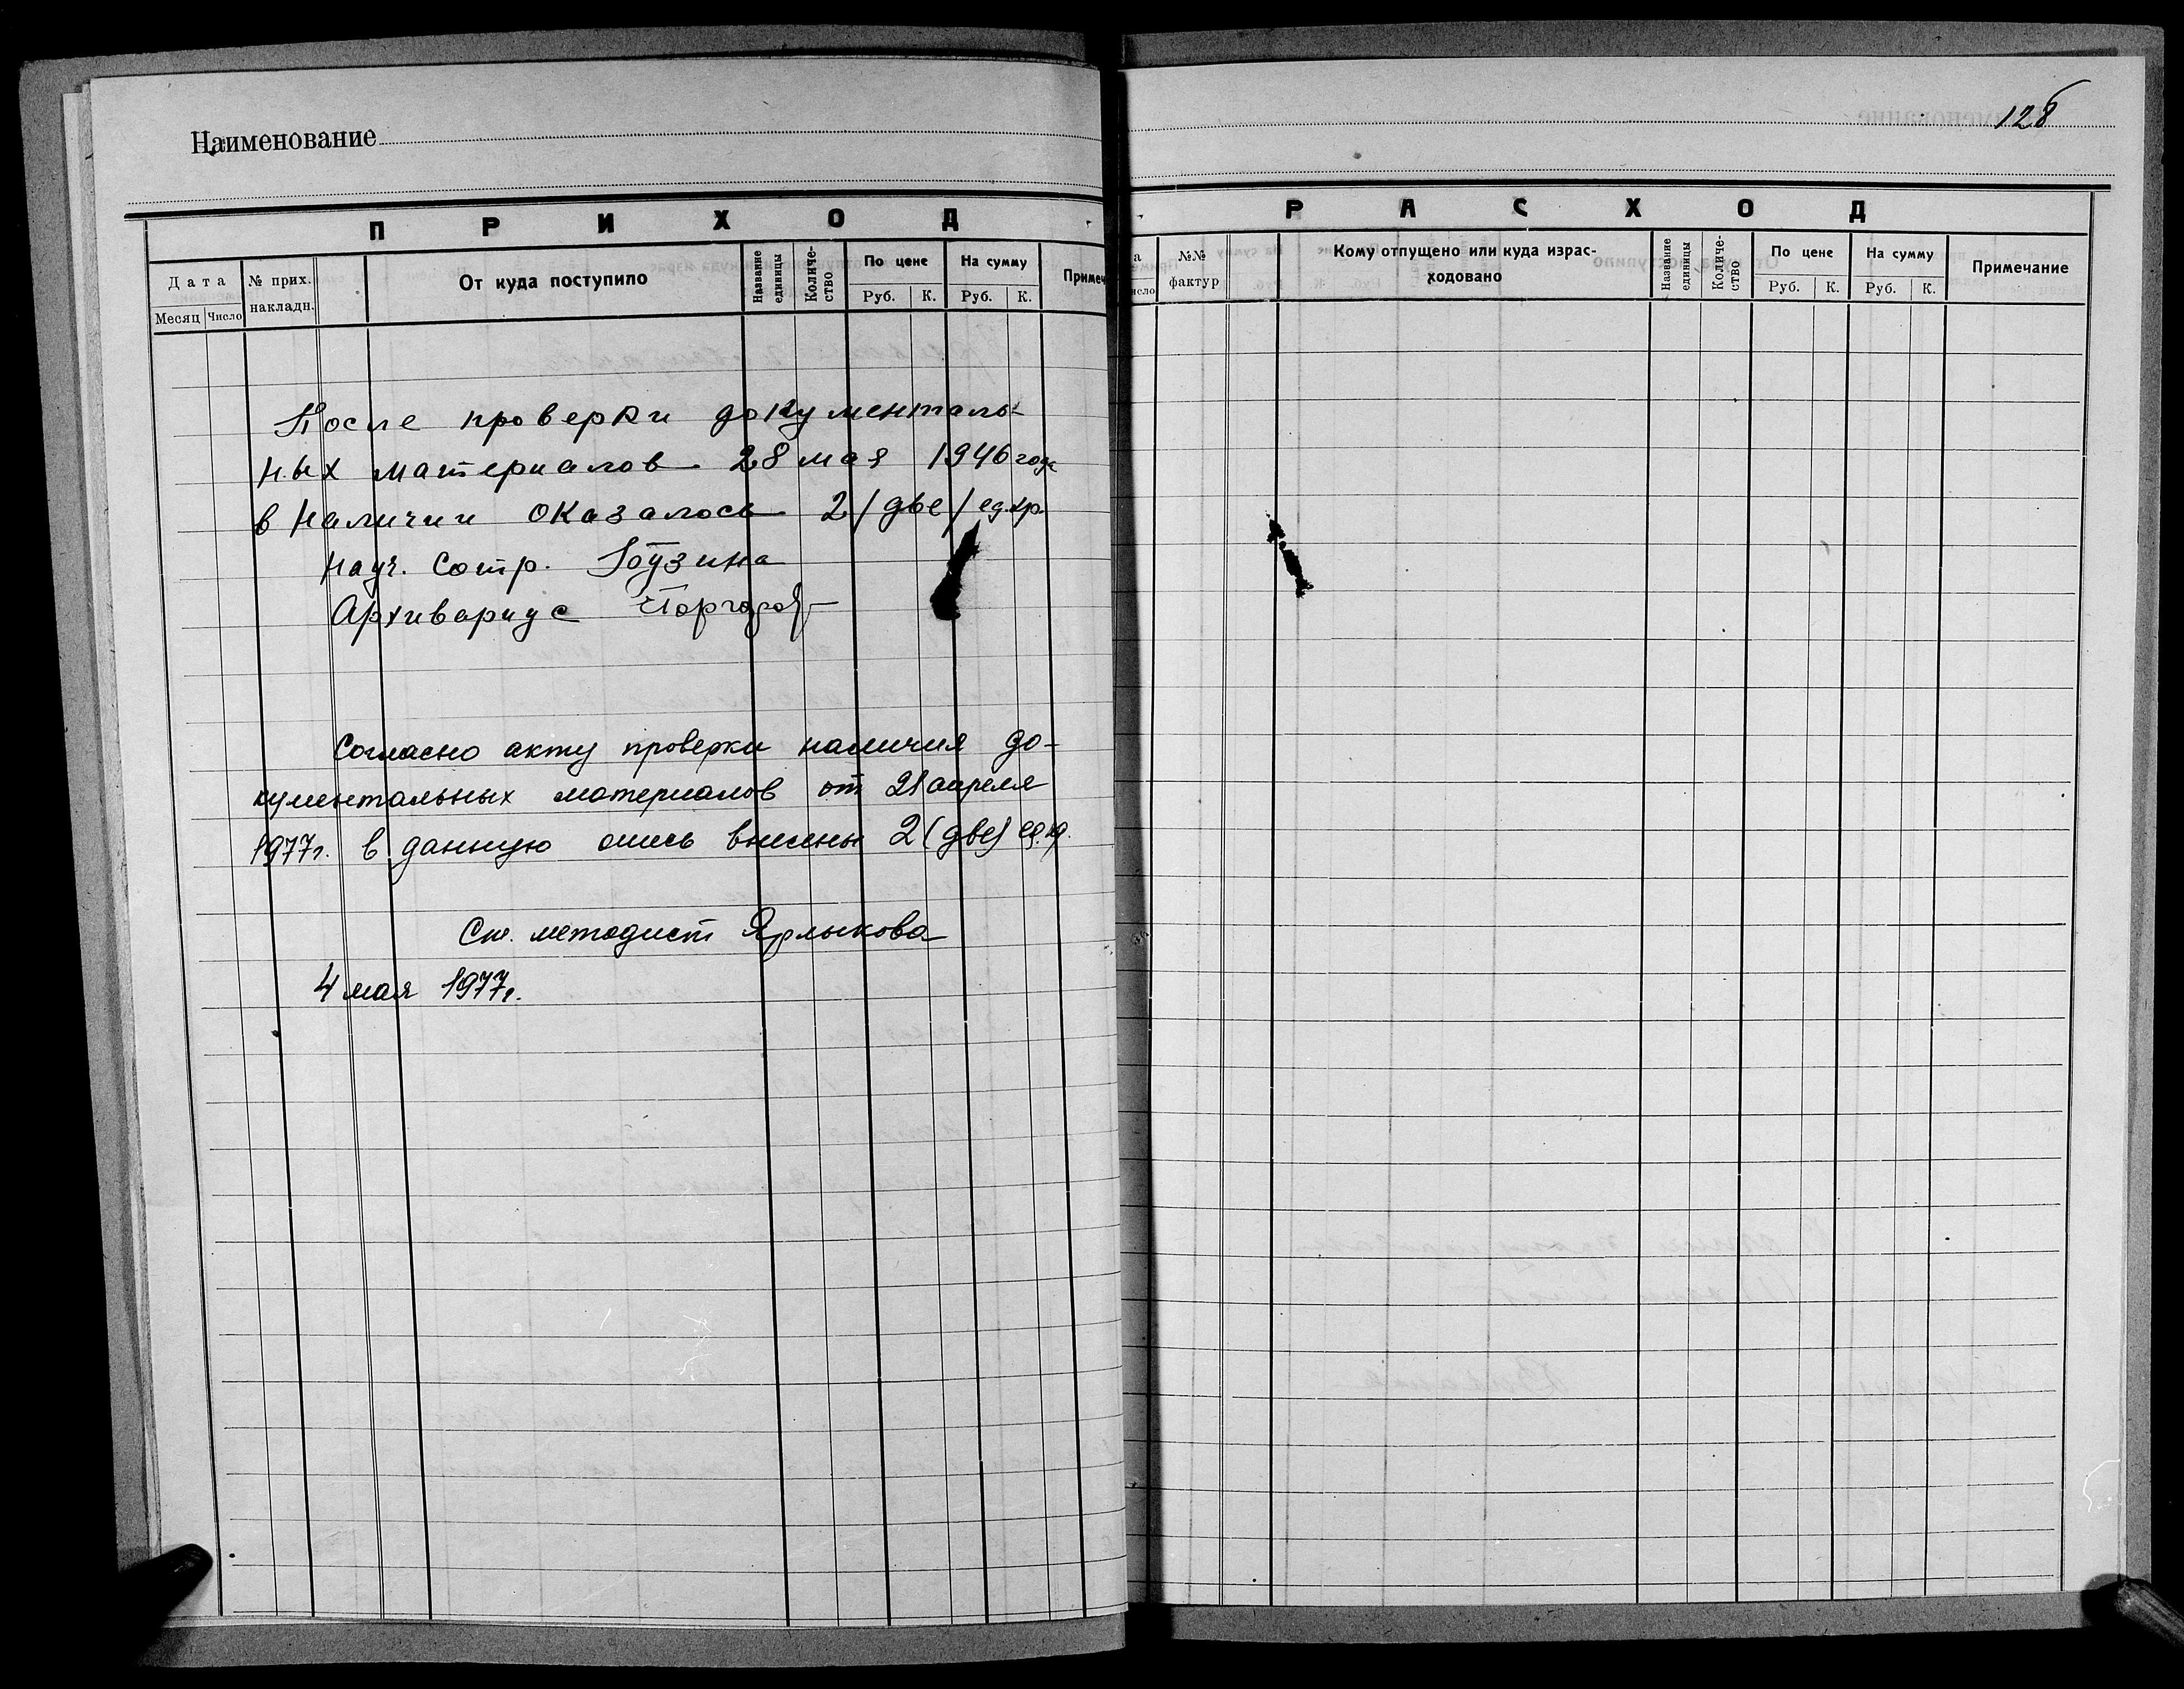 Наименование
П Р И Х О Д
Дата
Месяц Число
№ прих. накладн.
От куда поступило
Название единицы
Количе-
ство
По цене
Руб. К.
На сумму
Руб. К.
Примеч
После проверки документаль-
ных материалов 28 мая 1946 года
в наличии оказалось 2 /две/ ед.хр.
Науч. сотр.
Архивариус
Согласно акту проверки наличия до-
кументальных материалов от 21 апреля
1977г. в данную опись внесены 2 (две) ед.хр.
Ст. методист Ярлыкова
4 мая 1977г.
128
Р А С Х О Д
а
исло
№№
фактур
Кому отпущено или куда израс-
ходовано
Название единицы
Количе-
ство
По цене
Руб. К.
На сумму
Руб. К.
Примечание